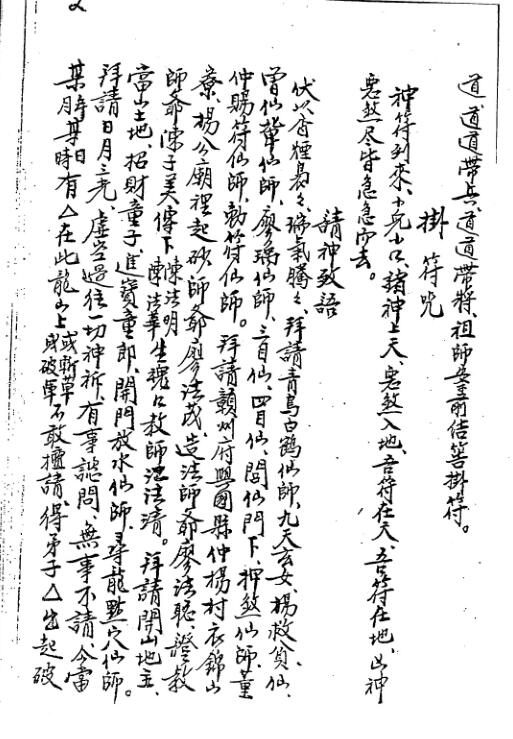 道、道道帶兵、道道帶將、祖師堂前結箬掛符。
掛符咒
神符到來、小兒小口、諸神上天、惡煞入地、吾符在天、吾符在地、凶神
惡煞尽皆急急而去。
請神致語
伏以香煙裊々、瑞氣騰々、拜請青鳥白鶴仙師、九天玄女、楊救貧仙、
曾仙華仙師、廖瑀仙師、三目仙、四目仙、閭仙門下、押煞仙師、董
仲賜符仙師、勅符仙師。拜請贛州府興國縣仲楊村衣錦山
寮、楊公廟裡起砂師爺廖法茂、造法師爺廖法聪、證教
師爺陳子美、傳下陳法明陳法華生魂口教師江法清。拜請開山地主、
當山土地、招財童子、進寶童郎、開門放水仙師、尋龍點穴仙師。
拜請日月三光、虛空過往一切神祇、有事談問、無事不請、今當
某月某日某時有△在此龍山上或斬草或破軍不敢擅請、得弟子△出起破
2